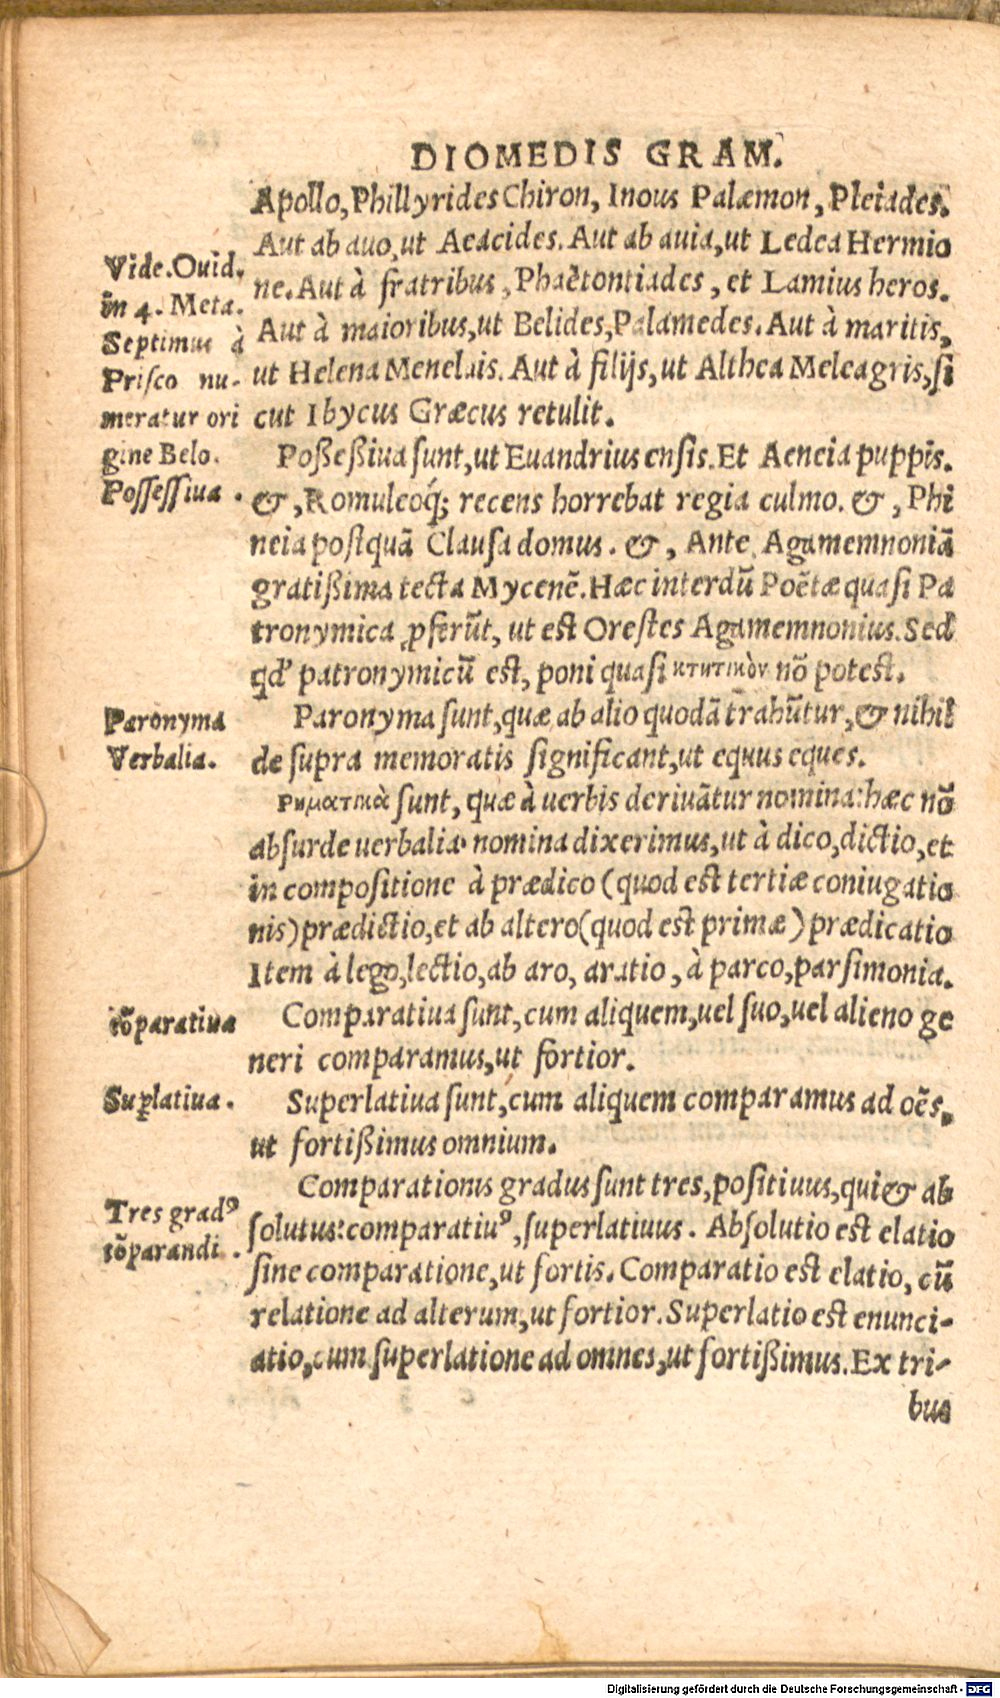 DIOMEDIS GRAM.
Apollo, Phillyrides Chiron, Inous Palæmon, Pleiades.
Aut ab auo, ut Aeacides. Aut ab auia, ut Ledea Hermio
ne. Aut à fratribus, Phaëtontiades, et Lamius heros.
Aut à maioribus, ut Belides, Palamedes. Aut à maritis,
ut Helena Menelais. Aut à filijs, ut Althea Meleagris, si
cut Ibycus Græcus retulit.
Vide. Ouid.
in 4. Meta.
Septimus à
Prisco nu-
meratur ori
gine Belo.
Possessiua.
Poßeßiua sunt, ut Euandrius ensis. Et Aeneia puppis.
&, Romuleoq́; recens horrebat regia culmo. &, Phi
neia postquā Clausa domus. &, Ante Agamemnoniā
gratißima tecta Mycenē. Hæc interdū Poëtæ quasi Pa
tronymica ꝓferūt, ut est Orestes Agamemnonius. Sed
qd' patronymicū est, poni quasi κτητικὸν nō potest.
Paronyma
Verbalia.
Paronyma sunt, quæ ab alio quodā trahūtur, & nihil
de supra memoratis significant, ut equus eques.
Ρηματικὰ sunt, quæ à uerbis deriuātur nomina: hæc nō
absurde uerbalia nomina dixerimus, ut à dico, dictio, et
in compositione à prædico (quod est tertiæ coniugatio
nis) prædictio, et ab altero (quod est primæ) prædicatio
Item à lego, lectio, ab aro, aratio, à parco, parsimonia.
cōparatiua
Comparatiua sunt, cum aliquem, uel suo, uel alieno ge
neri comparamus, ut fortior.
Suꝑlatiua.
Superlatiua sunt, cum aliquem comparamus ad oēs,
ut fortißimus omnium.
Tres gradꝰ
cōparandi.
Comparationis gradus sunt tres, positiuus, qui & ab
solutus: comparatiuꝰ, superlatiuus. Absolutio est elatio
sine comparatione, ut fortis. Comparatio est elatio, cū
relatione ad alterum, ut fortior. Superlatio est enunci-
atio, cum superlatione ad omnes, ut fortißimus. Ex tri-
bus
Digitalisierung gefördert durch die Deutsche Forschungsgemeinschaft - DFG